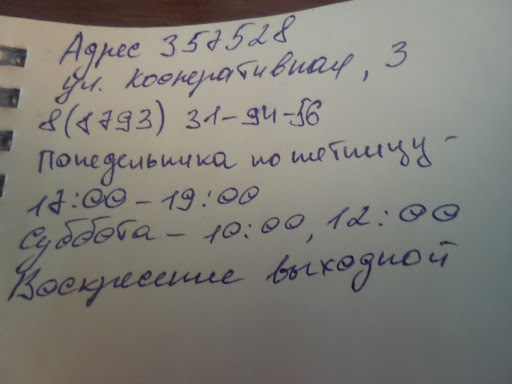 Адрес 357528
ул. Кооперативная, 3
8(8793) 31-94-56
понедельника по пятницу -
17:00 - 19:00
Суббота - 10:00, 12:00
Воскресение выходной